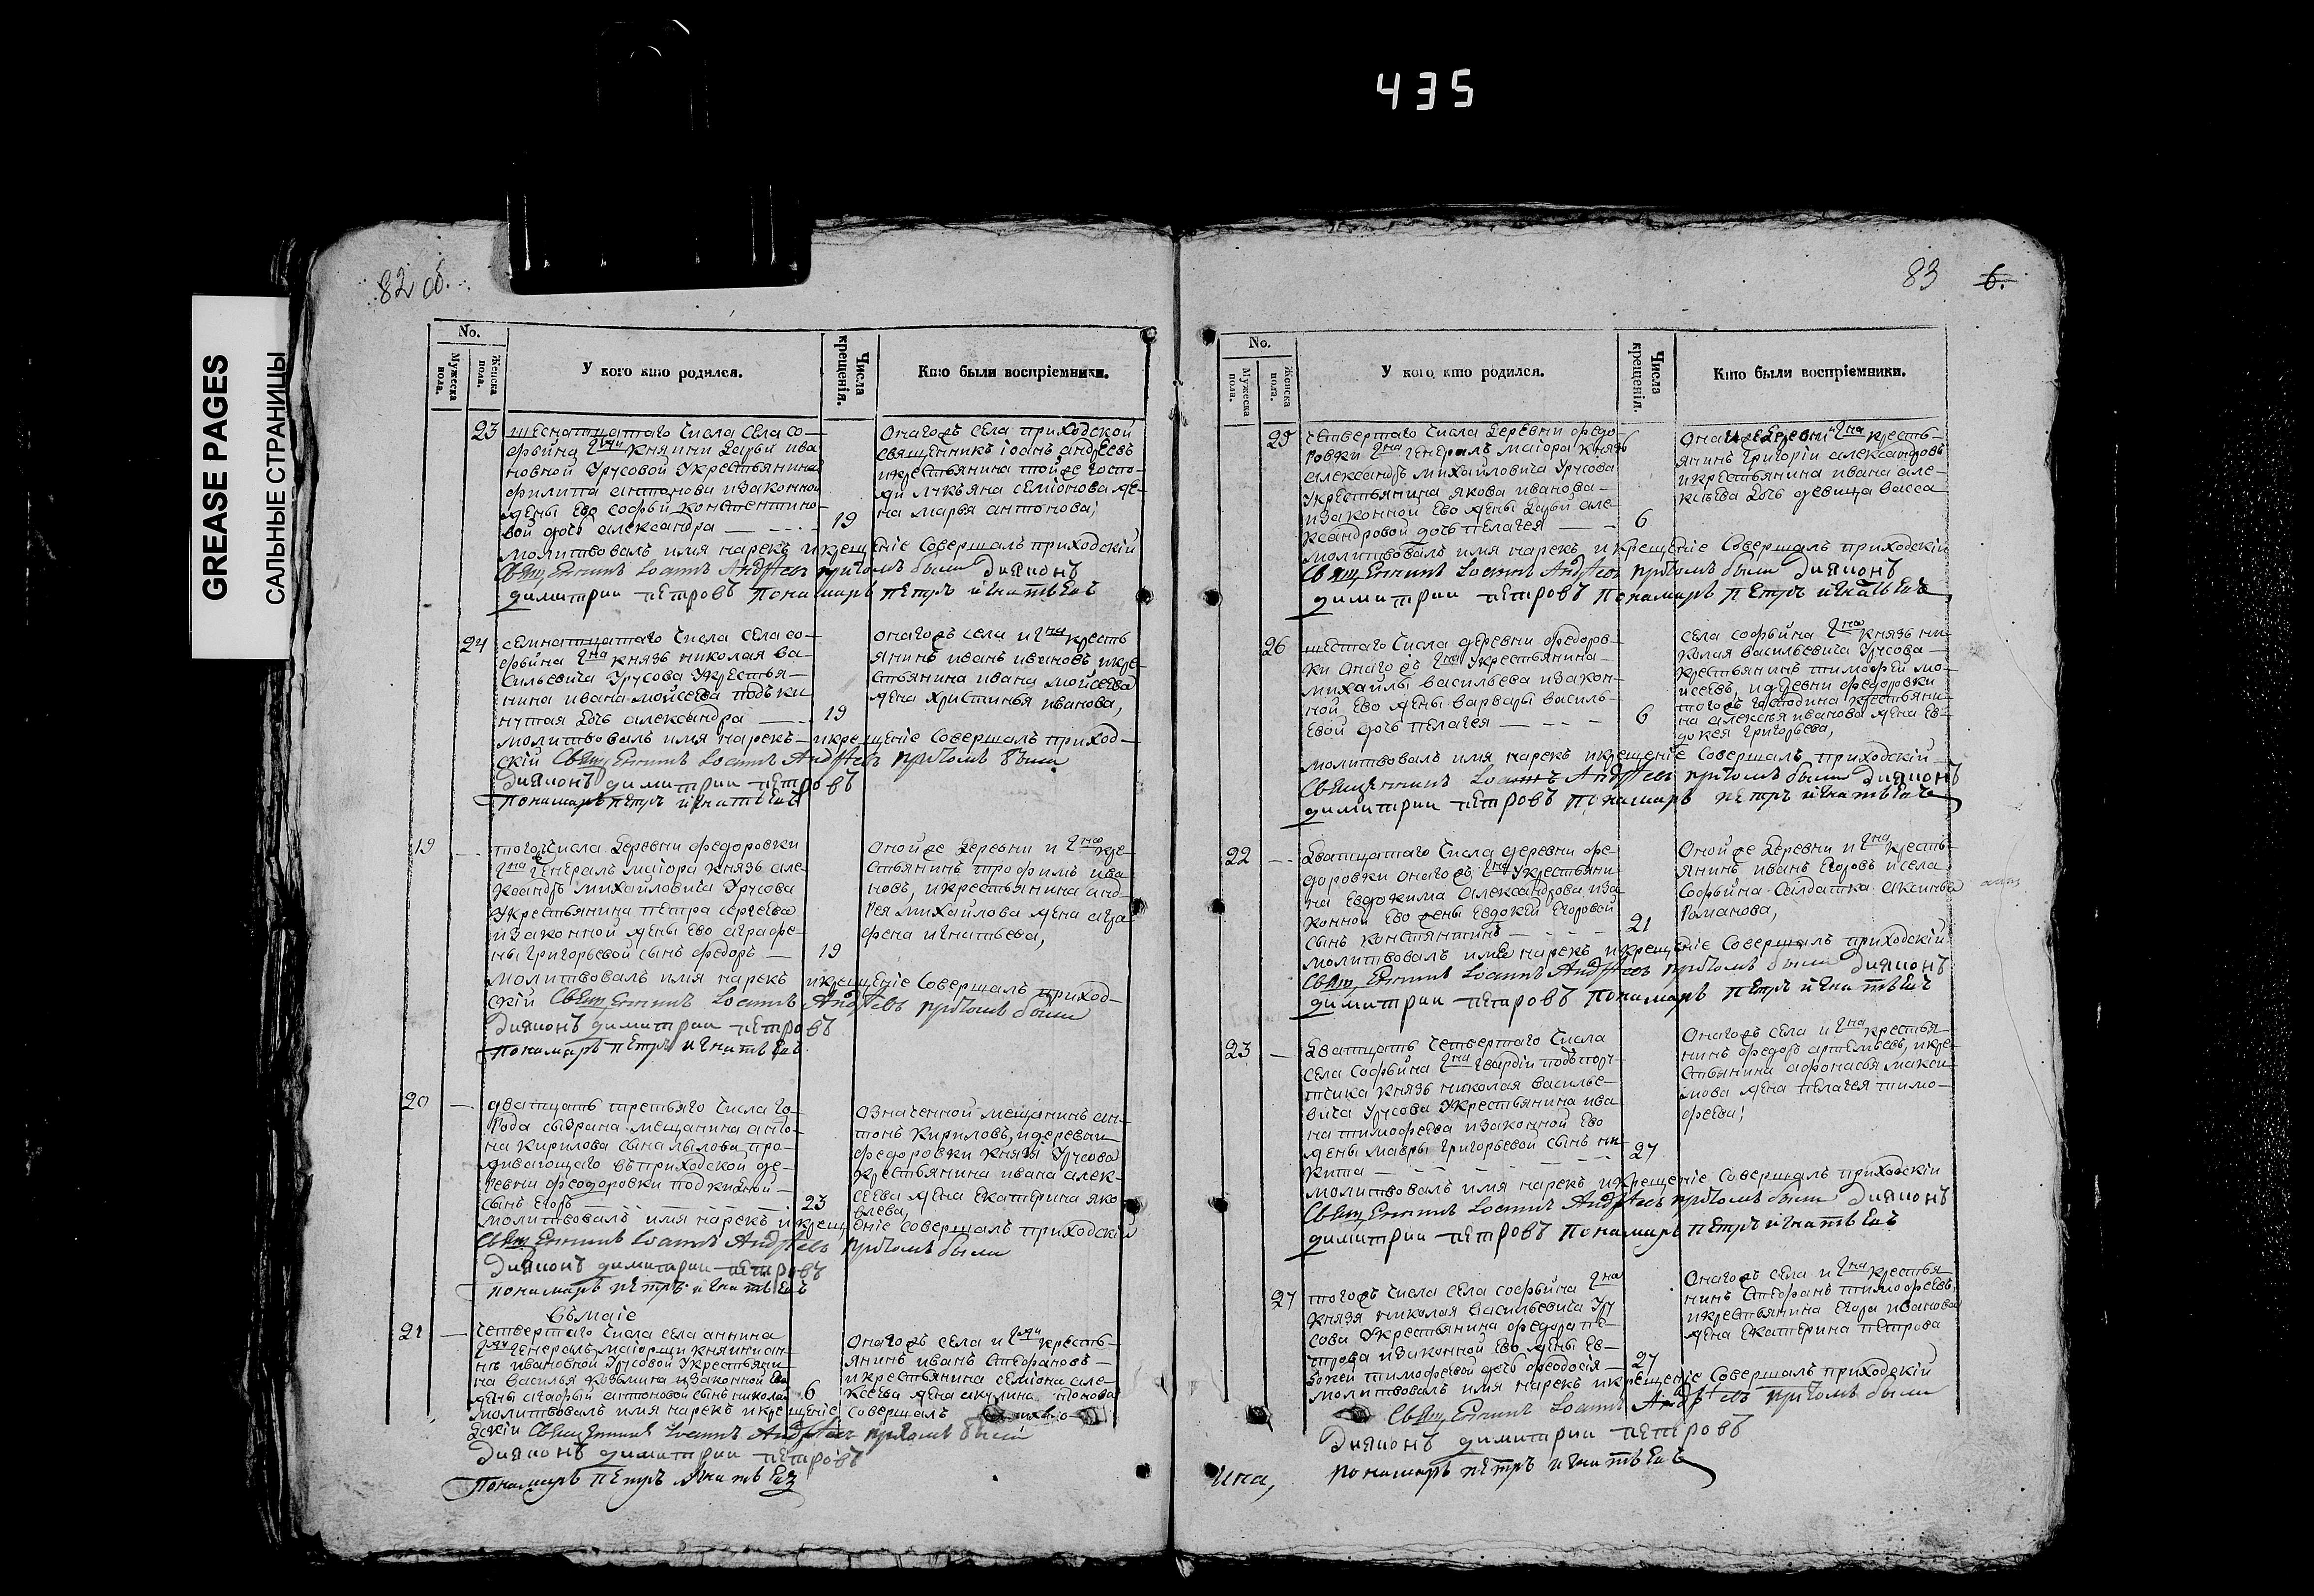 435
GREASE PAGES
САЛЬНЫЕ СТРАНИЦЫ
82 об.
No.
Мужеска пола.
Женска пола.
У кого кто родился.
Числа крещенія.
Кто были воспріемники.
23
шеснатцатаго числа села со-
фьина княини дарьи ива
новной Урусовой Укрестьянина
филипа антонова изаконной
жены ево софьи констентино-
вой дочь александра
19
Онагожъ села приходской
священникъ іоанъ андреевъ
икрестьянина тойже госпо-
жи лукьяна семіонова же-
на марья антонова,
молитвовалъ имя нарекъ и крещеніе Совершалъ приходскій
Священникъ Іоаннъ Андреевъ притомъ были дияконъ
димитрии петровъ Пономарь петръ игнатьевъ
24
семнатцатаго числа села со-
фьина гна князь николая ва-
сильевича Урусова Укрестья-
нина ивана мойсева подъки
нутая дочь александра
19
онагожъ села и гна кресть
янинъ иванъ ивановъ, икре-
стьянина ивана мойсева
жена христинья иванова,
молитвовалъ имя нарекъ икрещеніе Совершалъ приход-
скій Священникъ Іоаннъ Андреевъ притомъ были
дияконъ димитрии петровъ
пономарь петръ игнатьевъ
19
тогожъ числа деревни федоровки
гна генералъ маіора князь але-
ксандръ михайловича Урусова
Укрестьянина петра сергеева
изаконной жены ево аграфе-
ны григорьевой сынъ федоръ
19
оной же деревни и гна кре-
стьянинъ трофимъ ива
новъ, икрестьянина анд-
рея михайлова жена агра
фена игнатьева,
молитвовалъ имя нарекъ икрещеніе Совершалъ приход-
скій Священникъ Іоаннъ Андреевъ притомъ были
дияконъ димитрии петровъ
пономарь петръ игнатьевъ
20
дватцать третьяго числа го-
рода сызрана мещанина анто-
на кирилова сына лылова про-
живающаго въ приходской де-
ревни феодоровки подкидной
сынъ Егоръ
23
означенной мещанинъ ан-
тонъ кириловъ, идеревни
федоровки князя Урусова
крестьянина ивана алек-
сеева жена екатерина яко
влева,
молитвовалъ имя нарекъ и крещеніе совершалъ приходскій
Священникъ Іоаннъ Андреевъ притомъ были
дияконъ димитрии петровъ
пономарь петръ игнатьевъ
Въ маіе
21
четвертаго числа села аннина
генералъ маіорши княини ан-
ны ивановной Урусовой Укрестьяни-
на василья козьмина изаконной ево
жены агафьи антоновой сынъ николай
6
Онагожъ села и кресть-
янинъ иванъ стефановъ
икрестьянина семіона але-
ксеева жена акулина
молитвовалъ имя нарекъ икрещеніе совершалъ
дскій Священникъ Іоаннъ Андреевъ притомъ были
дияконъ димитрии петровъ
Пономарь петръ игнатьевъ
83
6.
No.
Мужеска пола.
Женска пола.
У кого кто родился.
Числа крещенія.
Кто были воспріемники.
25
четвертаго числа деревни федо-
ровки гна генералъ маіора князь
александръ михайловича Урусова
Укрестьянина якова иванова
изаконной ево жены дарьи але-
ксандровой дочь пелагея
6
Онагоже деревни гна кресть-
янинъ григоріи александровъ
икрестьянина ивана але-
ксеева дочь девица васса
молитвовалъ имя нарекъ, и крещеніе Совершалъ приходскій
Священникъ Іоаннъ Андреевъ притомъ были дияконъ
димитрии петровъ Пономарь петръ игнатьевъ
26
шестаго числа деревни федоров-
ки онагожъ гна Укрестьянина
михайлы васильева изакон-
ной ево жены варвары василь-
евой дочь пелагея
6
села софьина гна князь ни-
колая васильевича Урусова
крестьянинъ тимофей мо-
исеевъ, идеревни федоровки
тогожъ господина крестьяни-
на алексея иванова жена ев-
докея григорьева,
молитвовалъ имя нарекъ икрещеніе Совершалъ приходскій
Священникъ Іоаннъ Андреевъ притомъ были дияконъ
димитрии петровъ Пономарь петръ игнатьевъ
22
дватцатаго числа деревни фе-
доровки онагожъ гна Укрестьяни
на евдокима александрова иза
конной ево жены евдокеи егоровой
сынъ констянтинъ
21
Оной же деревни и гна кресть-
янинъ иванъ егоровъ исела
Софьина Салдатка аксинья
Романова,
молитвовалъ имя нарекъ икрещеніе Совершалъ приходскій
Священникъ Іоаннъ Андреевъ притомъ были дияконъ
димитрии петровъ пономарь петръ игнатьевъ
23
дватцать четвертаго числа
села софьина гна гвардіи подъпору-
тчика князь николая василье-
вича Урусова Укрестьянина ива
на тимофеева изаконной ево
жены мавры григорьевой сынъ ни-
кита
27
Онагожъ села и гна крестья
нинъ федоръ артемьевъ, икре-
стьянина афонасья макси
мова жена пелагея тимо-
феева,
молитвовалъ имя нарекъ икрещеніе Совершалъ приходскіи
Священникъ Іоаннъ Андреевъ притомъ были дияконъ
димитрии петровъ Пономарь петръ игнатьевъ
27
тогожъ числа села софьина гна
князя николая васильевича Уру
сова Укрестьянина федора пе-
трова изаконной ево жены ев-
докеи тимофеевой дочь феодосія
27
Онагожъ села и гна крестья
нинъ стефанъ тимофеевъ,
икрестьянина егора иванова
жена екатерина петрова
молитвовалъ имя нарекъ икрещеніе Совершалъ приходскій
Священникъ Іоаннъ Андреевъ притомъ были
дияконъ димитрии петровъ
пономарь петръ игнатьевъ